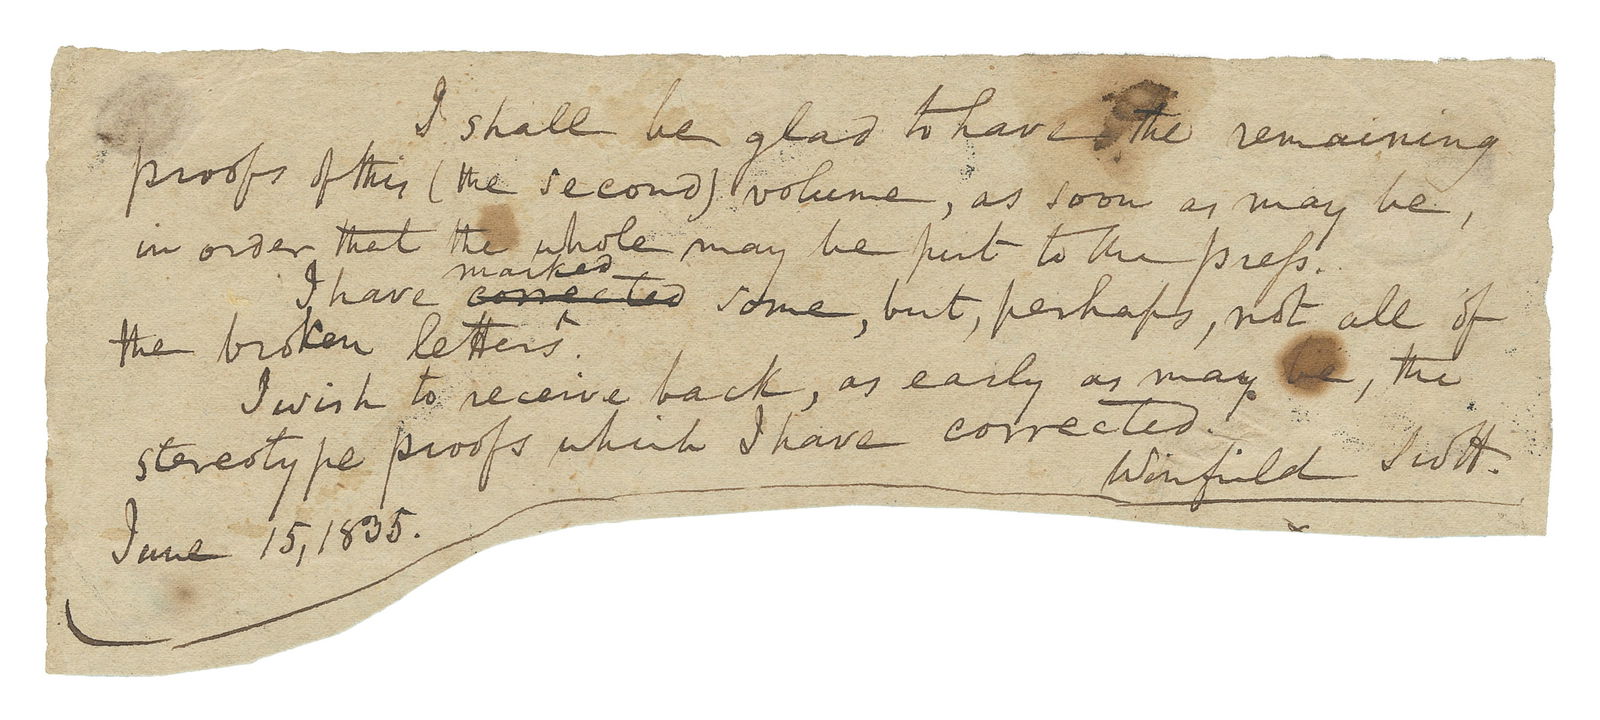 I shall be glad to have the remaining
proofs of this (the second) volume, as soon as may be,
in order that the whole may be put to the press.
marked
I have corrected some, but, perhaps, not all of
the broken letters.
I wish to receive back, as early as may be, the
stereotype proofs which I have corrected.
Winfield Scott.
June 15, 1835.